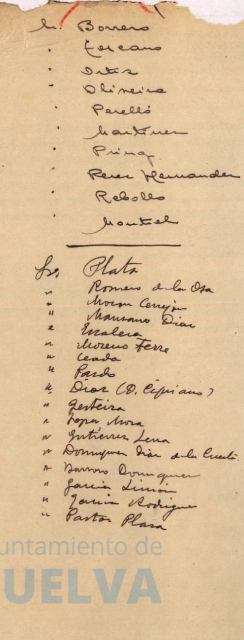 Sr. Borrero
" Toscano
" Ortiz
" Oliveira
" Perelló
" Martinez
" Pérez Hernandez
" Rebollo
" Montiel
Sr. Plata
" Romero de la Osa
" Moron Cerrejon
" Manzano Diaz
" Escalera
" Moreno Ferre
" Ceada
" Pardo
" Diaz (D. Cipriano)
" Gesteira
" Lopez Mora
" Gutiérrez Lena
" Dominguez Diaz de la Cuesta
" Barroso Dominguez
" Garcia Limon
" Garcia Rodriguez
" Pastor Plasa
untamiento de
UELVA